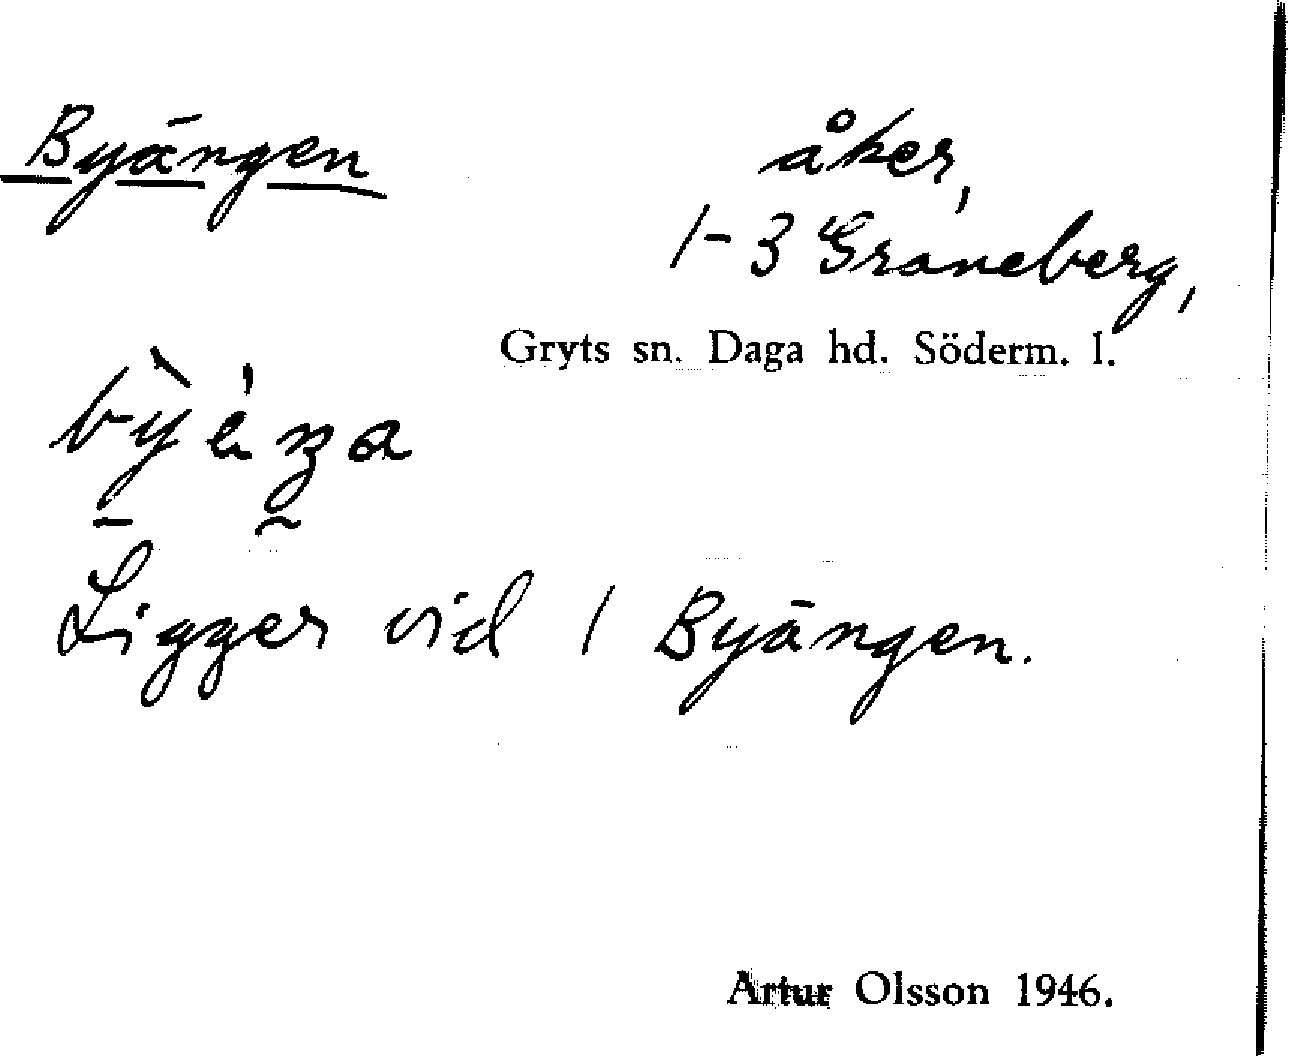 Byängen
åker,
1-3 Graneberg,
Gryts sn. Daga hd. Söderm. l.
Ligger vid 1 Byängen.
Artur Olsson 1946.